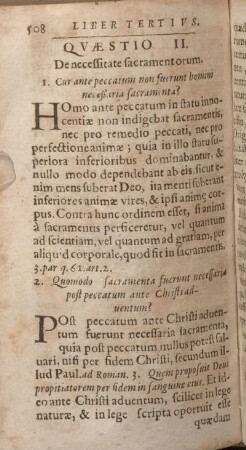 508 LIBER TERTIVS.
QVÆSTIO II.
De necessitate sacramentorum.
1. Cur ante peccatum non fuerunt homini
necessaria sacramenta?
HOmo ante peccatum in statu inno-
centiæ non indigebat sacramentis,
nec pro remedio peccati, nec pro
perfectione animæ; quia in illo statu su-
perior inferioribus dominabatur, &
nullo modo dependebat ab eis. sicut e-
nim mens suberat Deo, ita menti suberant
inferiores animæ vires, & ipsi animæ cor-
pus. Contra hunc ordinem esset, si anima
à sacramentis perficeretur, vel quantum
ad scientiam, vel quantum ad gratiam, per
aliquid corporale, quod fit in sacramentis.
3. par. q. 61. art. 2.
2. Quomodo sacramenta fuerunt necessaria
post peccatum ante Christi ad-
uentum?
POst peccatum ante Christi aduen-
tum fuerunt necessaria sacramenta,
quia post peccatum nullus potest sal-
uari, nisi per fidem Christi, secundum il-
lud Paul. ad Roman. 3. Quem proposuit Deus
propitiatorem per fidem in sanguine eius. Et id-
eo ante Christi aduentum, scilicet in lege
naturæ, & in lege scripta oportuit esse
quædam